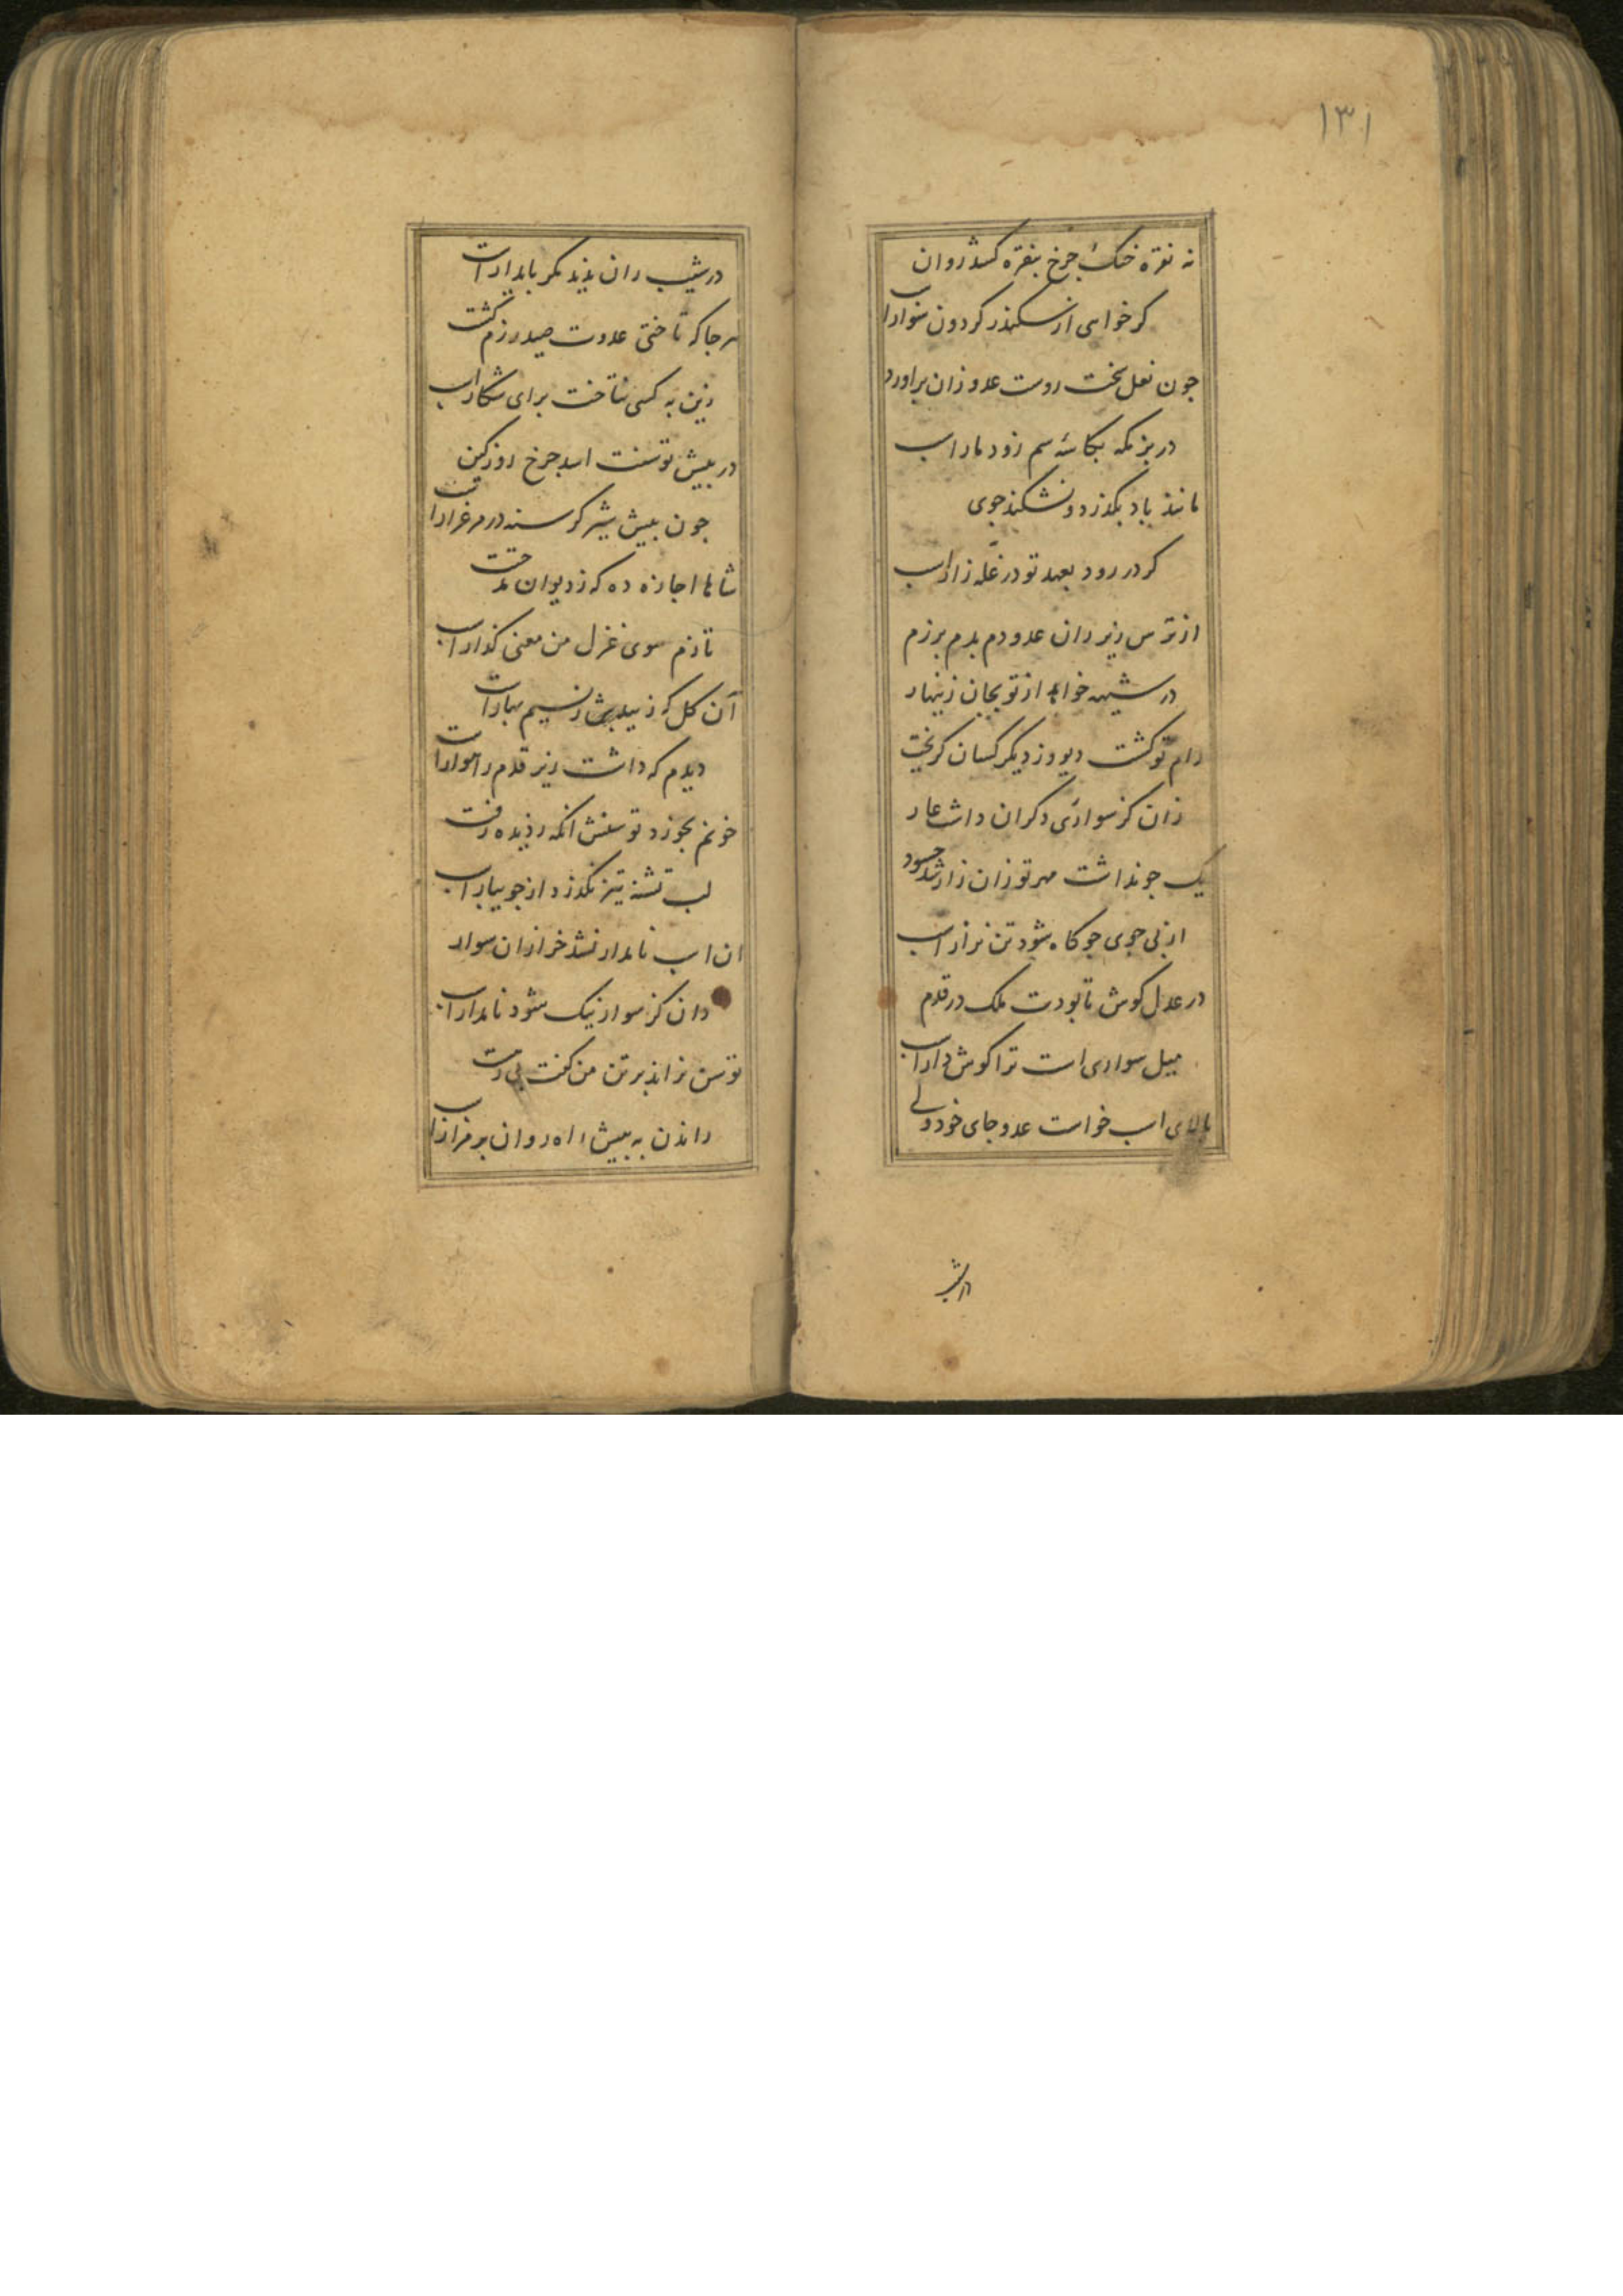 ۱۳۱
نه نقره خنک چرخ بنقره کشد روان
کر خواهی از سکندر کردون سوار اسب
جون نعل سخت روست عدو زان براورد
در بزمکه بکاسه سم زو دمار اسب
مانند باد بکذرد و نشکند جوی
کر در رود بعهد تو در غله زار اسب
از ترس زیر ران عدو دم بدم برزم
در شیهه خواهد از تو بجان زینهار
رام تو کشت دیو و ز دیکر کسان کریخت
زان کز سواری دکران داشت عار
یک جو نداشت مهر تو زان زار شد حسود
از بی جوی جو کاه شود تن نزار اسب
در عدل کوش تا بودت ملک در قدم
میل سواری است ترا کوش دار اسب
بالای اسب خواست عدو جای خود ولی
در شیب
در شیب ران ندید مکر بایدار اسب
هر جا که تاختی عدوت صید رزم کشت
زین به کسی نتاخت برای شکار اسب
در بیش توسنت اسد جرخ روز کین
جون بیش شیر کرسنه در مرغزار اسب
شاها اجازه ده که ز دیوان مدحتت
تازم سوی غزل من معنی کذار اسب
آن کل که زیبدش ز نسیم بهار اسب
دیدم که داشت زیر قدم راهوار اسب
خونم بخورد توسنش انکه ز دیده رفت
لب تشنه تیز نکذرد از جویبار اسب
ان اسب نامدار نشد جز ازان سوار
دان کز سوار نیک شود نامدار اسب
توسن نراند بر تن من کفت بی رهست
راندن به بیش راه روان بر مزار اسب